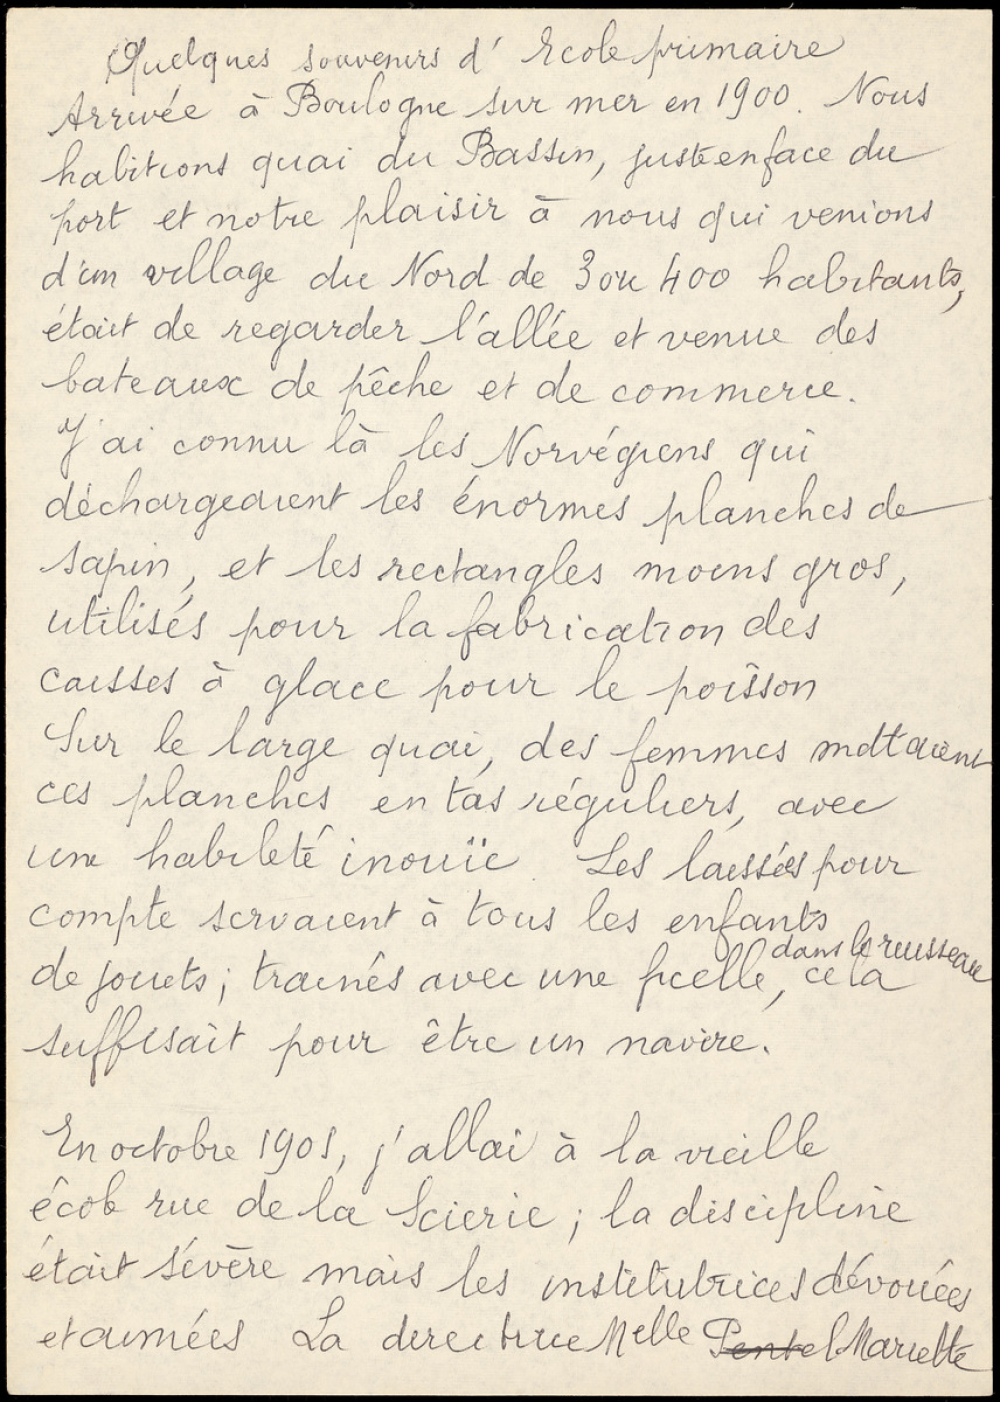 Quelques souvenirs d' Ecole primaire
Arrivée à Boulogne sur mer en 1900. Nous
habitions quai du Bassin, juste en face du
port et notre plaisir à nous qui venions
d'un village du Nord de 3 ou 400 habitants,
était de regarder l'allée et venue des
bateaux de pêche et de commerce.
J'ai connu là les Norvégiens qui
déchargeaient les énormes planches de
sapin, et les rectangles moins gros,
utilisés pour la fabrication des
caisses à glace pour le poisson
Sur le large quai, des femmes mettaient
ces planches en tas réguliers, avec
une habileté inouïe. Les laissés pour
compte servaient à tous les enfants
dans le ruisseau
de jouets; traînés avec une ficelle, cela
suffisait pour être un navire.
En octobre 1901, j'allai à la vieille
école rue de la Scierie; la discipline
était sévère mais les institutrices dévouées
et aimées La directrice Melle Mariette